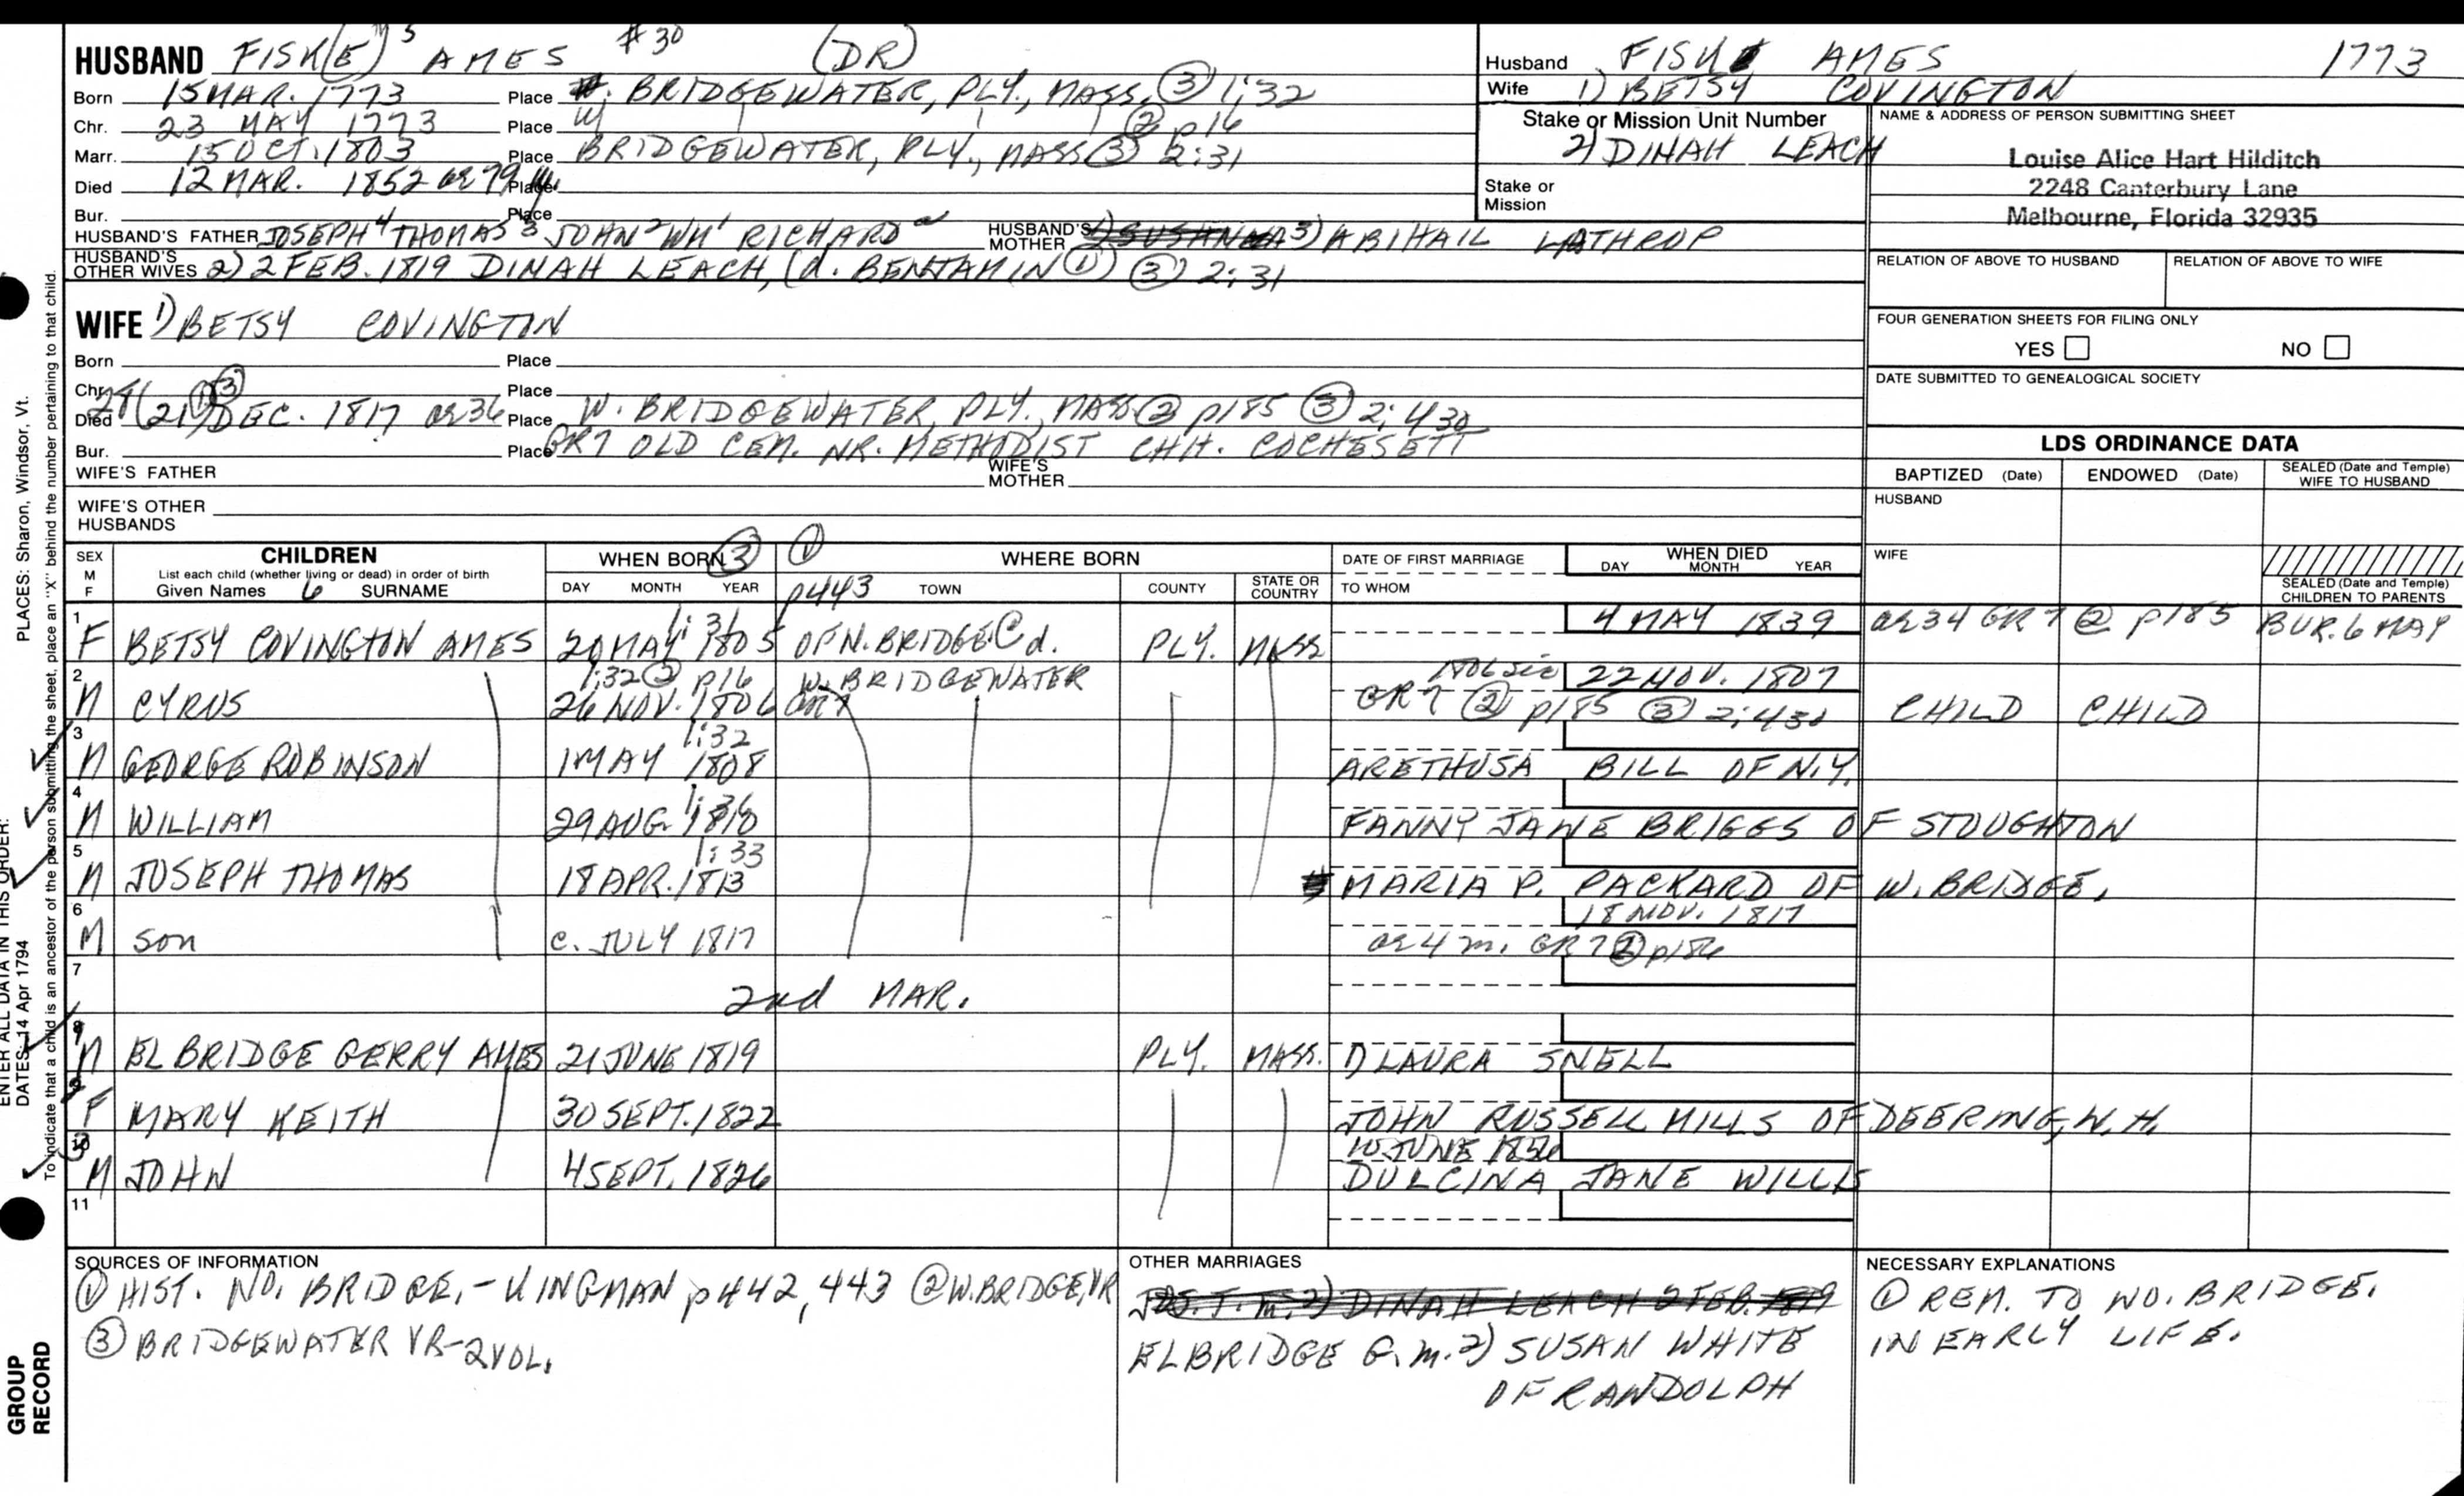 HUSBAND FISK(E) 5 AMES #30 (DR)
Born 15 MAR. 1773 Place BRIDGEWATER, PLY., MASS. ③ 1:32
Chr. 23 MAY 1773 Place W ② p16
Marr. 15 OCT. 1803 Place BRIDGEWATER, PLY., MASS ③ 2:31
Died 12 MAR. 1852 ae 79 Place
Bur. Place
HUSBAND'S FATHER JOSEPH 4 THOMAS 3 JOHN 2 WM 1 RICHARD a HUSBAND'S MOTHER 3) ABIHAIL LATHROP
HUSBAND'S OTHER WIVES 2) 2 FEB. 1819 DINAH LEACH, (d. BENJAMIN ①) ③ 2:31
Husband FISKE AMES 1773
Wife 1) BETSY COVINGTON
Stake or Mission Unit Number
2) DINAH LEACH
Stake or Mission
NAME & ADDRESS OF PERSON SUBMITTING SHEET
Louise Alice Hart Hilditch
2248 Canterbury Lane
Melbourne, Florida 32935
RELATION OF ABOVE TO HUSBAND RELATION OF ABOVE TO WIFE
FOUR GENERATION SHEETS FOR FILING ONLY
YES NO
DATE SUBMITTED TO GENEALOGICAL SOCIETY
WIFE 1) BETSY COVINGTON
Born Place
Chr. Place
Died 28 (21 ① ③) DEC. 1817 ae 36 Place W. BRIDGEWATER, PLY. MASS ② p185 ③ 2:430
Bur. Place GR7 OLD CEM. NR. METHODIST CHH. COCHESETT
WIFE'S FATHER WIFE'S MOTHER
WIFE'S OTHER HUSBANDS
LDS ORDINANCE DATA
BAPTIZED (Date) ENDOWED (Date) SEALED (Date and Temple) WIFE TO HUSBAND
HUSBAND
WIFE
SEALED (Date and Temple) CHILDREN TO PARENTS
SEX M F
CHILDREN
List each child (whether living or dead) in order of birth
Given Names 6 SURNAME
WHEN BORN ③
DAY MONTH YEAR
① p443 WHERE BORN
TOWN COUNTY STATE OR COUNTRY
DATE OF FIRST MARRIAGE
TO WHOM
WHEN DIED
DAY MONTH YEAR
1 F BETSY COVINGTON AMES 20 MAY 1805 1:31 OF N. BRIDGE. d. PLY. MASS 4 MAY 1839 ae 34 GR7 ② p185 BUR. 6 MAY
2 M CYRUS 26 NOV. 1806 1:32 ② p16 W. BRIDGEWATER 1806 sic 22 NOV. 1807 GR7 ② p185 ③ 2:430 CHILD CHILD
3 M GEORGE ROBINSON 1 MAY 1808 1:32 ARETHUSA BILL OF N.Y.
4 M WILLIAM 29 AUG. 1810 1:36 FANNY JANE BRIGGS OF STOUGHTON
5 M JOSEPH THOMAS 18 APR. 1813 1:33 MARIA P. PACKARD OF W. BRIDGE.
6 M son c. JULY 1817 18 NOV. 1817 ae 4 m. GR7 ② p186
7 2nd MAR.
M ELBRIDGE GERRY AMES 21 JUNE 1819 PLY. MASS. 1) LAURA SNELL
F MARY KEITH 30 SEPT. 1822 JOHN RUSSELL MILLS OF DEERING, N.H.
M JOHN 4 SEPT. 1826 10 JUNE DULCINA JANE WILLIS
11
SOURCES OF INFORMATION
① HIST. NO. BRIDGE. - KINGMAN p442, 443 ② W. BRIDGE. VR
③ BRIDGEWATER VR - 2 VOL.
OTHER MARRIAGES
2) DINAH LEACH 2 FEB. 1819
ELBRIDGE G. m. 2) SUSAN WHITE
OF RANDOLPH
NECESSARY EXPLANATIONS
① REM. TO NO. BRIDGE.
IN EARLY LIFE.
ENTER ALL DATA IN THIS ORDER:
DATES: 14 Apr 1794 PLACES: Sharon, Windsor, Vt.
To indicate that a child is an ancestor of the person submitting the sheet, place an "X" behind the number pertaining to that child.
GROUP
RECORD